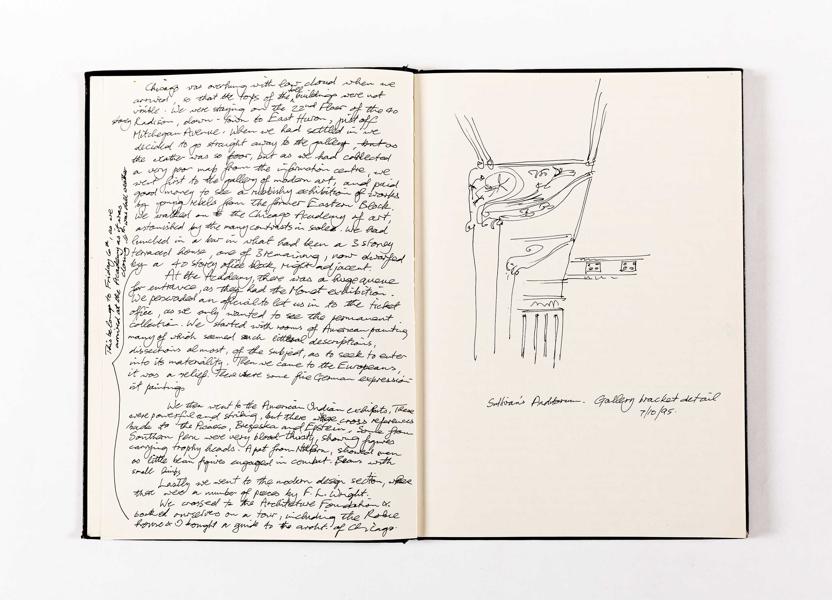 Chicago was overhung with low cloud when we
arrived so that the tops of the tall buildings were not
visible. We were staying on the 22nd Floor of the 40
story Radison, down-town to East Huron, just off
Mitchegan Avenue. When we had settled in we
decided to go straight away to the gallery, but as
the weather was so poor, but as we had collected
a very poor map from the information centre, we
went first to the gallery of modern art, and paid
good money to see a rubbishy exhibition of works
by young rebels from the former Eastern Block.
We walked on to the Chicago Academy of art,
astonished by the many contrasts in scale. We had
lunched in a bar in what had been a 3 storey
terraced house, one of 3 remaining, now dwarfed
by a 40 story office block, right adjacent.
At the Academy, there was a huge queue
for entrance, as they had the Monet exhibition.
We persuaded an official to let us in to the ticket
office, as we only wanted to see the permanent
collection. We started with rooms of American painting
many of which seemed such literal descriptions,
dissections almost, of the subject, as to seek to enter
into its materiality. Then we came to the Europeans,
it was a relief. There were some fine German expression-
ist paintings
We then went to the American Indian exhibits, These
were powerful and striking, but there were cross references
made to the Picasso, Brzeska and Epstein. Some from
Southern Peru were very blood-thirsty, showing figures
carrying trophy heads. A pot from showed men
as little bean figures engaged in combat. Beans with
small limbs
Lastly we went to the modern design section, where
there were a number of pieces by F. L. Wright.
We crossed to the Architecture Foundation &
booked ourselves on a tour, including the Robie
house & I bought a guide to the archt. of Chicago.
This belongs to Friday 6th, as we
arrived at the Academy as it was
closing
Sullivan's Auditorium. Gallery bracket detail
7/10/95.